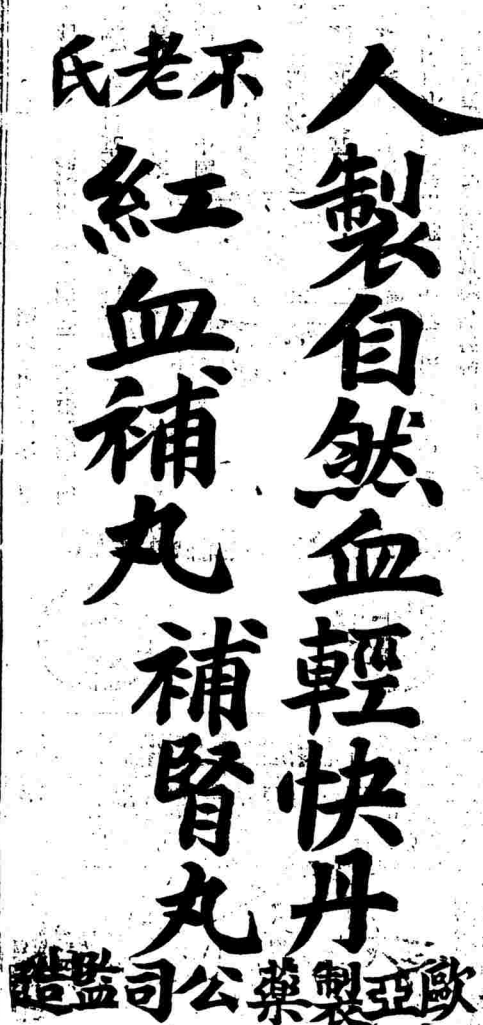 人製自然血輕快丹
不老氏
紅血補丸
補腎丸
歐亞製藥公司監造